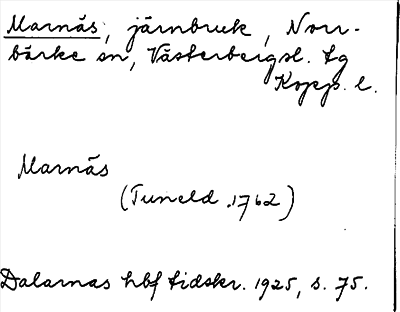 Marnäs, järnbruk, Norr-
bärke sn, Västerbergsl. tg
Kopp. l.
Marnäs
(Tuneld .1762)
Dalarnas hbf tidskr. 1925, s. 75.